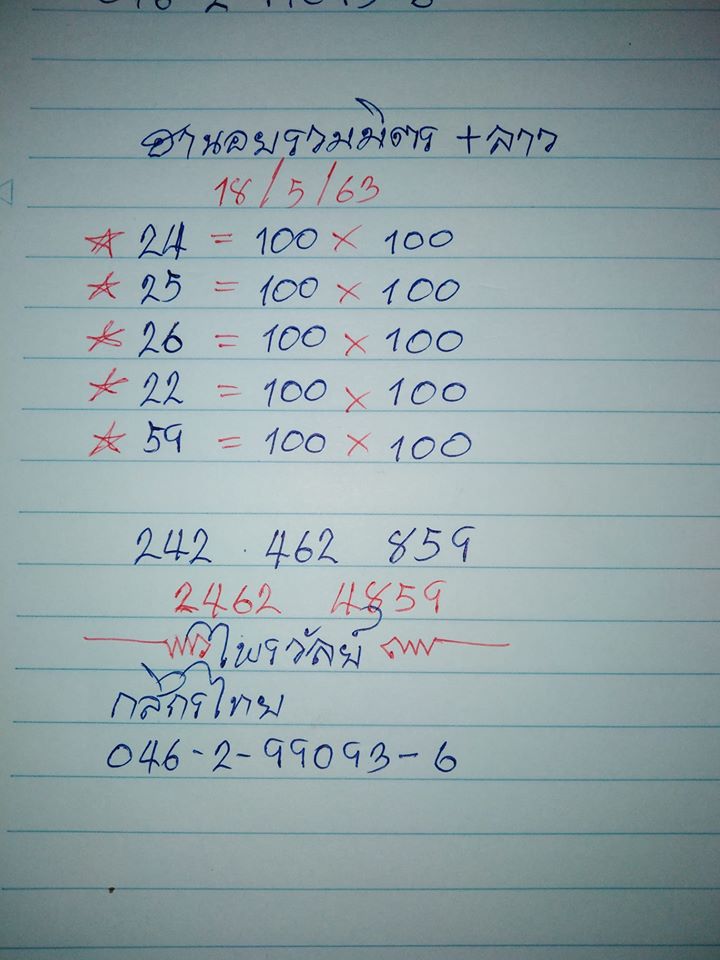 ฮานอยรวมมิตร + ลาว
18/5/63
24 = 100 × 100
25 = 100 × 100
26 = 100 × 100
22 = 100 × 100
59 = 100 × 100
242 . 462 859
2462 4859
ไพรวัลย์
กสิกรไทย
046-2-99093-6